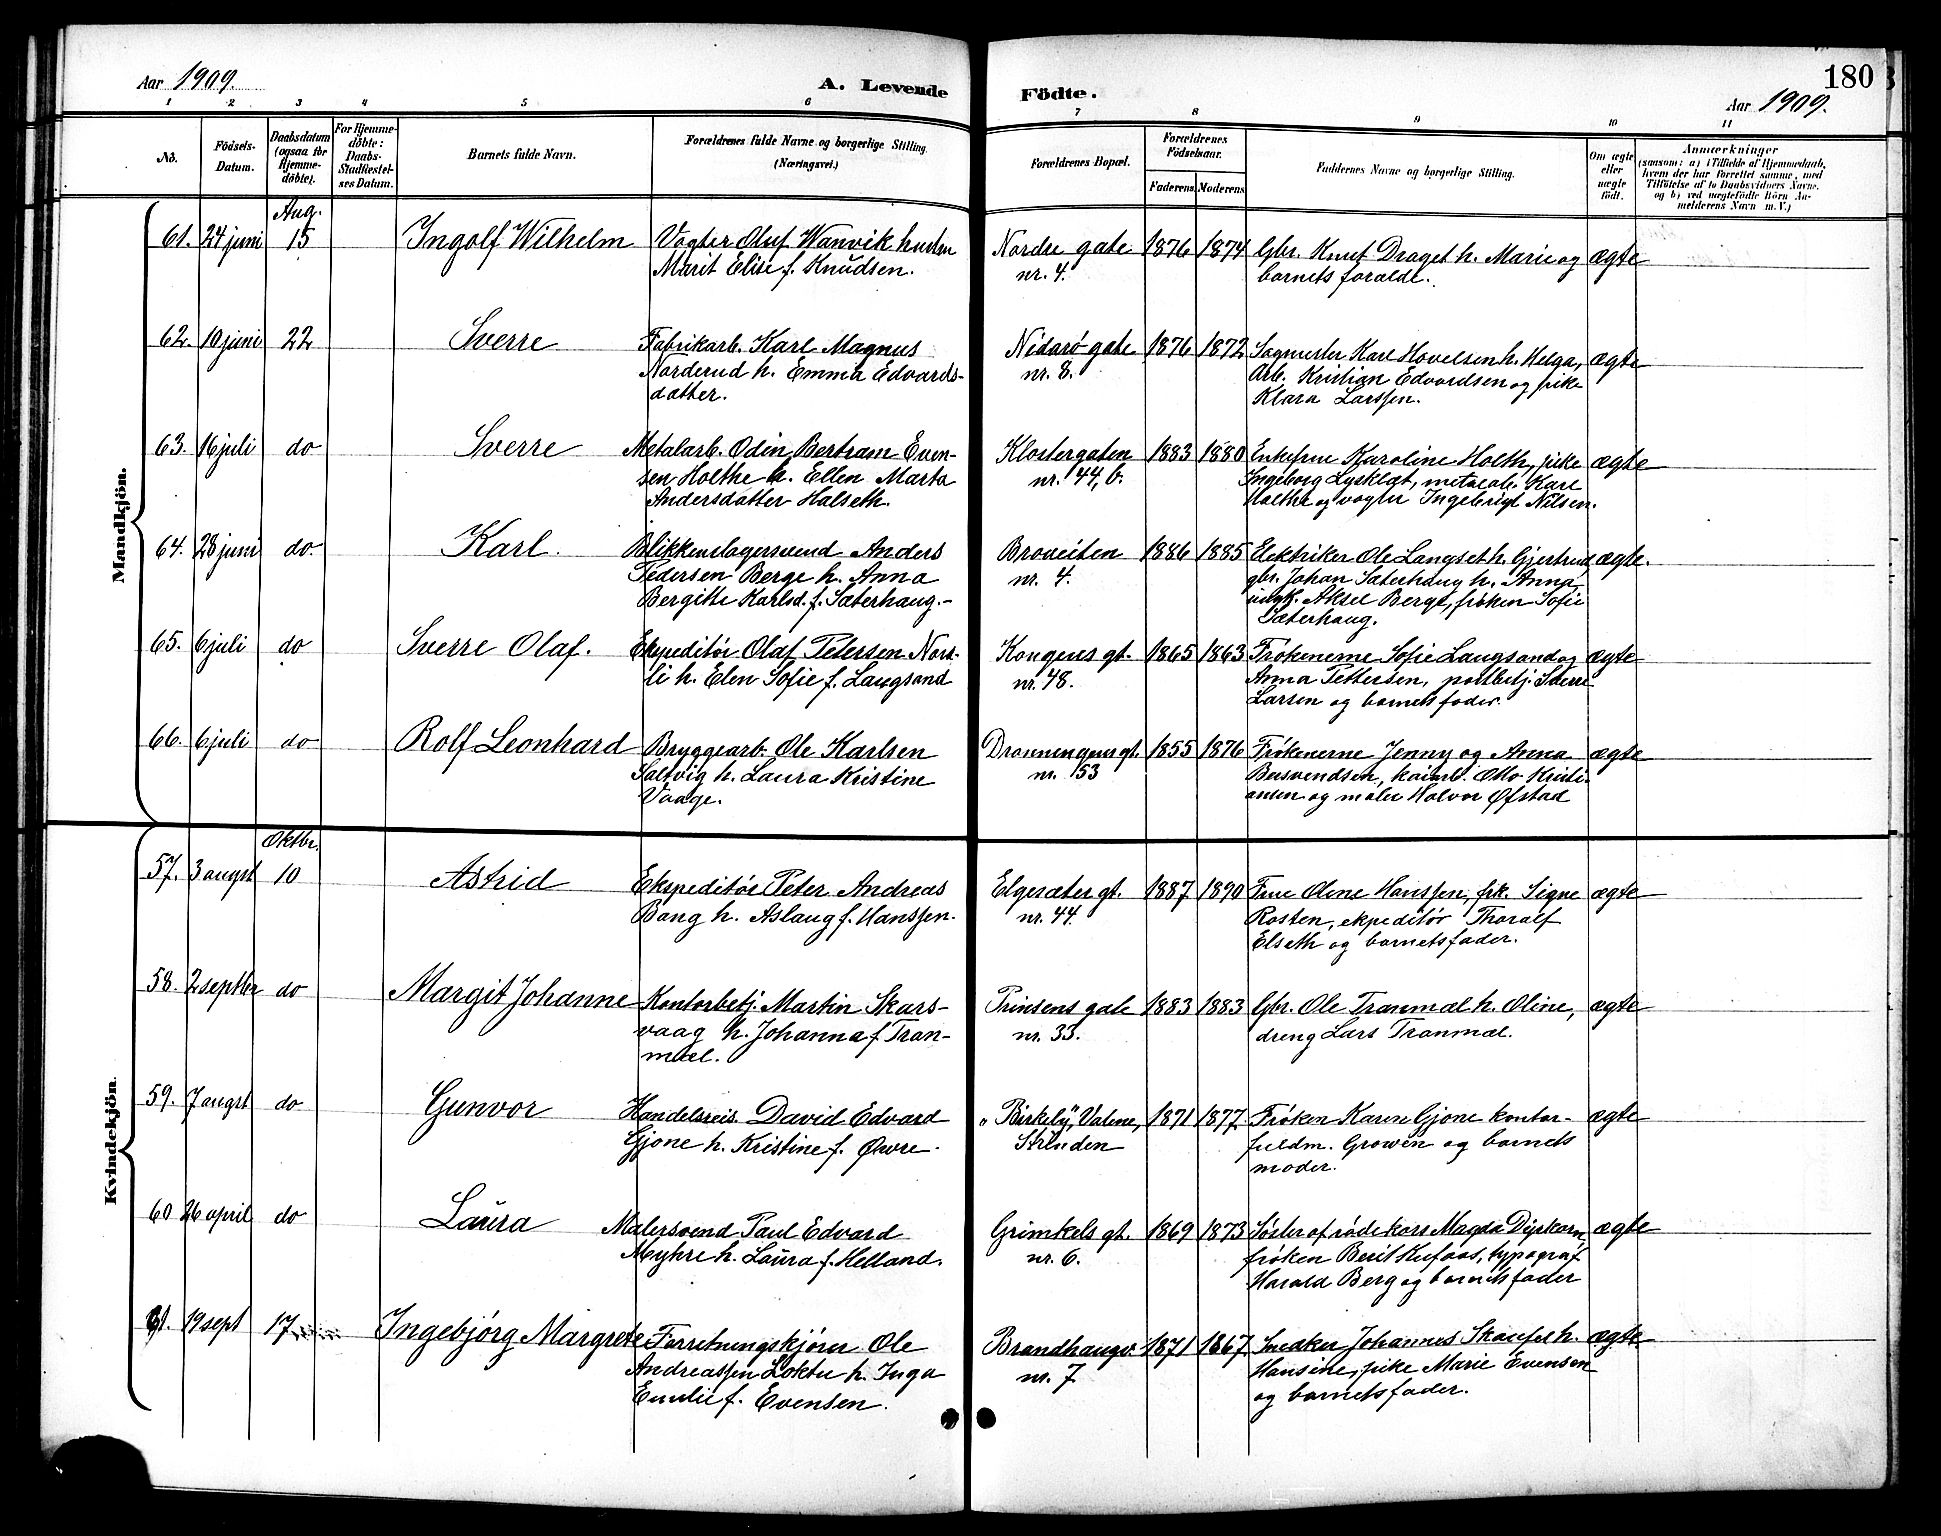 Aar 1909.
A. Levende
Födte.
180
Aar 1909.
1 2 3 4 5 6 7 8 9 10 11
No.
Födsels-
Datum.
Daabsdatum
(ogsaa for
Hjemme-
döbte).
For Hjemme-
döbte:
Daabs-
Stadfæstel-
ses Datum.
Barnets fulde Navn.
Forældrenes fulde Navne og borgerlige Stilling.
(Næringsvei.)
Forældrenes Bopæl.
Forældrenes
Födselsaar.
Faderens. Moderens.
Faddernes Navne og borgerlige Stilling.
Om ægte
eller
uægte
födt.
Anmærkninger
(saasom: a) i Tilfælde af Hjemmedaab,
hvem der har forrettet samme, med
Tilföielse af to Daabsvidners Navne.
og b) ved uægtefödte Börn An-
melderens Navn m. V.)
Mandkjön.
61. 24 juni Aug. 15 Ingolf Wilhelm
Vogter Oluf Wanvik hustru
Marit Elise f. Knudsen.
Nordre gate
nr. 4.
1876 1874
Gbr. Knut Draget h. Marie og
barnets forældre.
ægte
62. 10 juni 22 Sverre
Fabrikarb. Karl Magnus
Norderud h. Emma Edvards-
datter.
Nidarö gate
nr. 8.
1876 1872
Sagmester Karl Hovelsen h. Helga,
Arb. Kristian Edvardsen og pike
Klara Larssen.
ægte
63. 16 juli do Sverre
Metalarb. Odin Bertram Even-
sen Holthe h. Ellen Marta
Andersdatter Halseth.
Klostergaten
nr. 44, b.
1883 1880
Enkefrue Karoline Holth, pike
Ingeborg Lysklæt, metalarb. Karl
Holthe og vogter Ingebrigt Nilsen.
ægte
64. 28 juni do. Karl.
Blikkenslagersvend Anders
Pedersen Berge h. Anna
Bergitte Karlsd. f. Sæterhaug.-
Broveiten
nr. 4.
1886 1885
Elektriker Ole Langset h. Gjertrud
gbr. Johan Sæterhaug h. Anna
ungk. Aksel Berge, fröken Sofie
Sæterhaug.
ægte.
65. 6 juli do Sverre Olaf.
Ekspeditör Olaf Petersen Nors-
li h. Elen Sofie f. Laugsand
Kongens gt.
nr. 48.
1865 1863
Frökenerne Sofie Laugsand og
Anna Pettersen, postbetj. Sverre
Larsen og barnets fader.
ægte
66. 6 juli do Rolf Leonhard
Bryggearb. Ole Karlsen
Saltvig h. Laura Kristine
Vaage.
Dronningens gt.
nr. 153
1855 1876
Frökenerne Jenny og Anna
Busvendsen, Otto Kristi-
ansen og maler Halvor Øfstad
ægte
Kvindekjön.
57. 3 augst Oktbr. 10 Astrid
Ekspeditör Peter Andreas
Bang h. Aslaug f. Hanssen.
Elgesæter gt.
nr. 44.
1887 1890
Frue Oline Hanssen, frk. Signe
Rosten, ekpeditör Thoralf
Elseth og barnets fader.
ægte
58. 2 septbr do Margit Johanne
Kontorbetj. Martin Skars-
vaag h. Johanna f. Tran-
mæl.
Prinsens gate
nr. 33.
1883 1883
Gbr. Ole Tranmæl h. Oline,
dreng Lars Tranmæl.
ægte
59. 7 augst do Gunvor
Handelsreis. David Edvard
Gjone h. Kristine f. Øwre.
"Birkely", Valene,
Strinden
1871 1877
Fröken Karen Gjone kontor-
fuldm. Growen og barnets
moder.
ægte
60 26 april do Laura
Malersvend Paul Edvard
Myhre h. Laura f. Helland.
Grimkels gt.
nr. 6.
1869 1873
Söster af röde kors Magda Dyrkorn,
fröken Berit Kufaas, typograf
Harald Berg og barnets fader
ægte
61. 19 sept 17 Ingebjörg Margrete
Forretningskjörer Ole
Andreassen Loktu h. Inga
Emilie f. Evensen.
Brandhaugv.
nr. 7
1871 1867.
Snedker Johannes Skaufel h.
Hansine, pike Marie Evensen
og barnets fader.
ægte